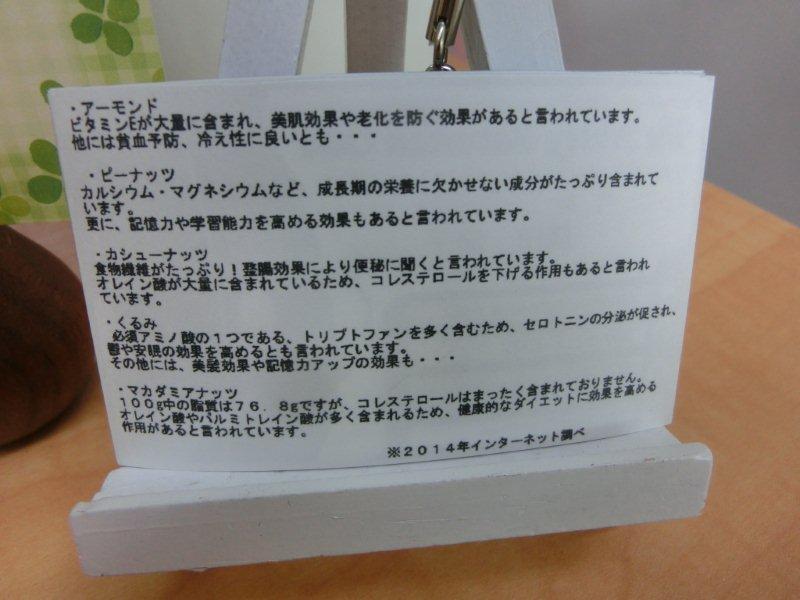 ・アーモンド
ビタミンEが大量に含まれ、美肌効果や老化を防ぐ効果があると言われています。
他には貧血予防、冷え性に良いとも・・・
・ピーナッツ
カルシウム・マグネシウムなど、成長期の栄養に欠かせない成分がたっぷり含まれて
います。
更に、記憶力や学習能力を高める効果もあると言われています。
・カシューナッツ
食物繊維がたっぷり!整腸効果により便秘に聞くと言われています。
オレイン酸が大量に含まれているため、コレステロールを下げる作用もあると言われ
ています。
・くるみ
必須アミノ酸の1つである、トリプトファンを多く含むため、セロトニンの分泌が促され、
鬱や安眠の効果を高めるとも言われています。
その他には、美髪効果や記憶力アップの効果も・・・
・マカダミアナッツ
100g中の脂質は76.8gですが、コレステロールはまったく含まれておりません。
オレイン酸やパルミトレイン酸が多く含まれるため、健康的なダイエットに効果を高める
作用があると言われています。
※2014年インターネット調べ